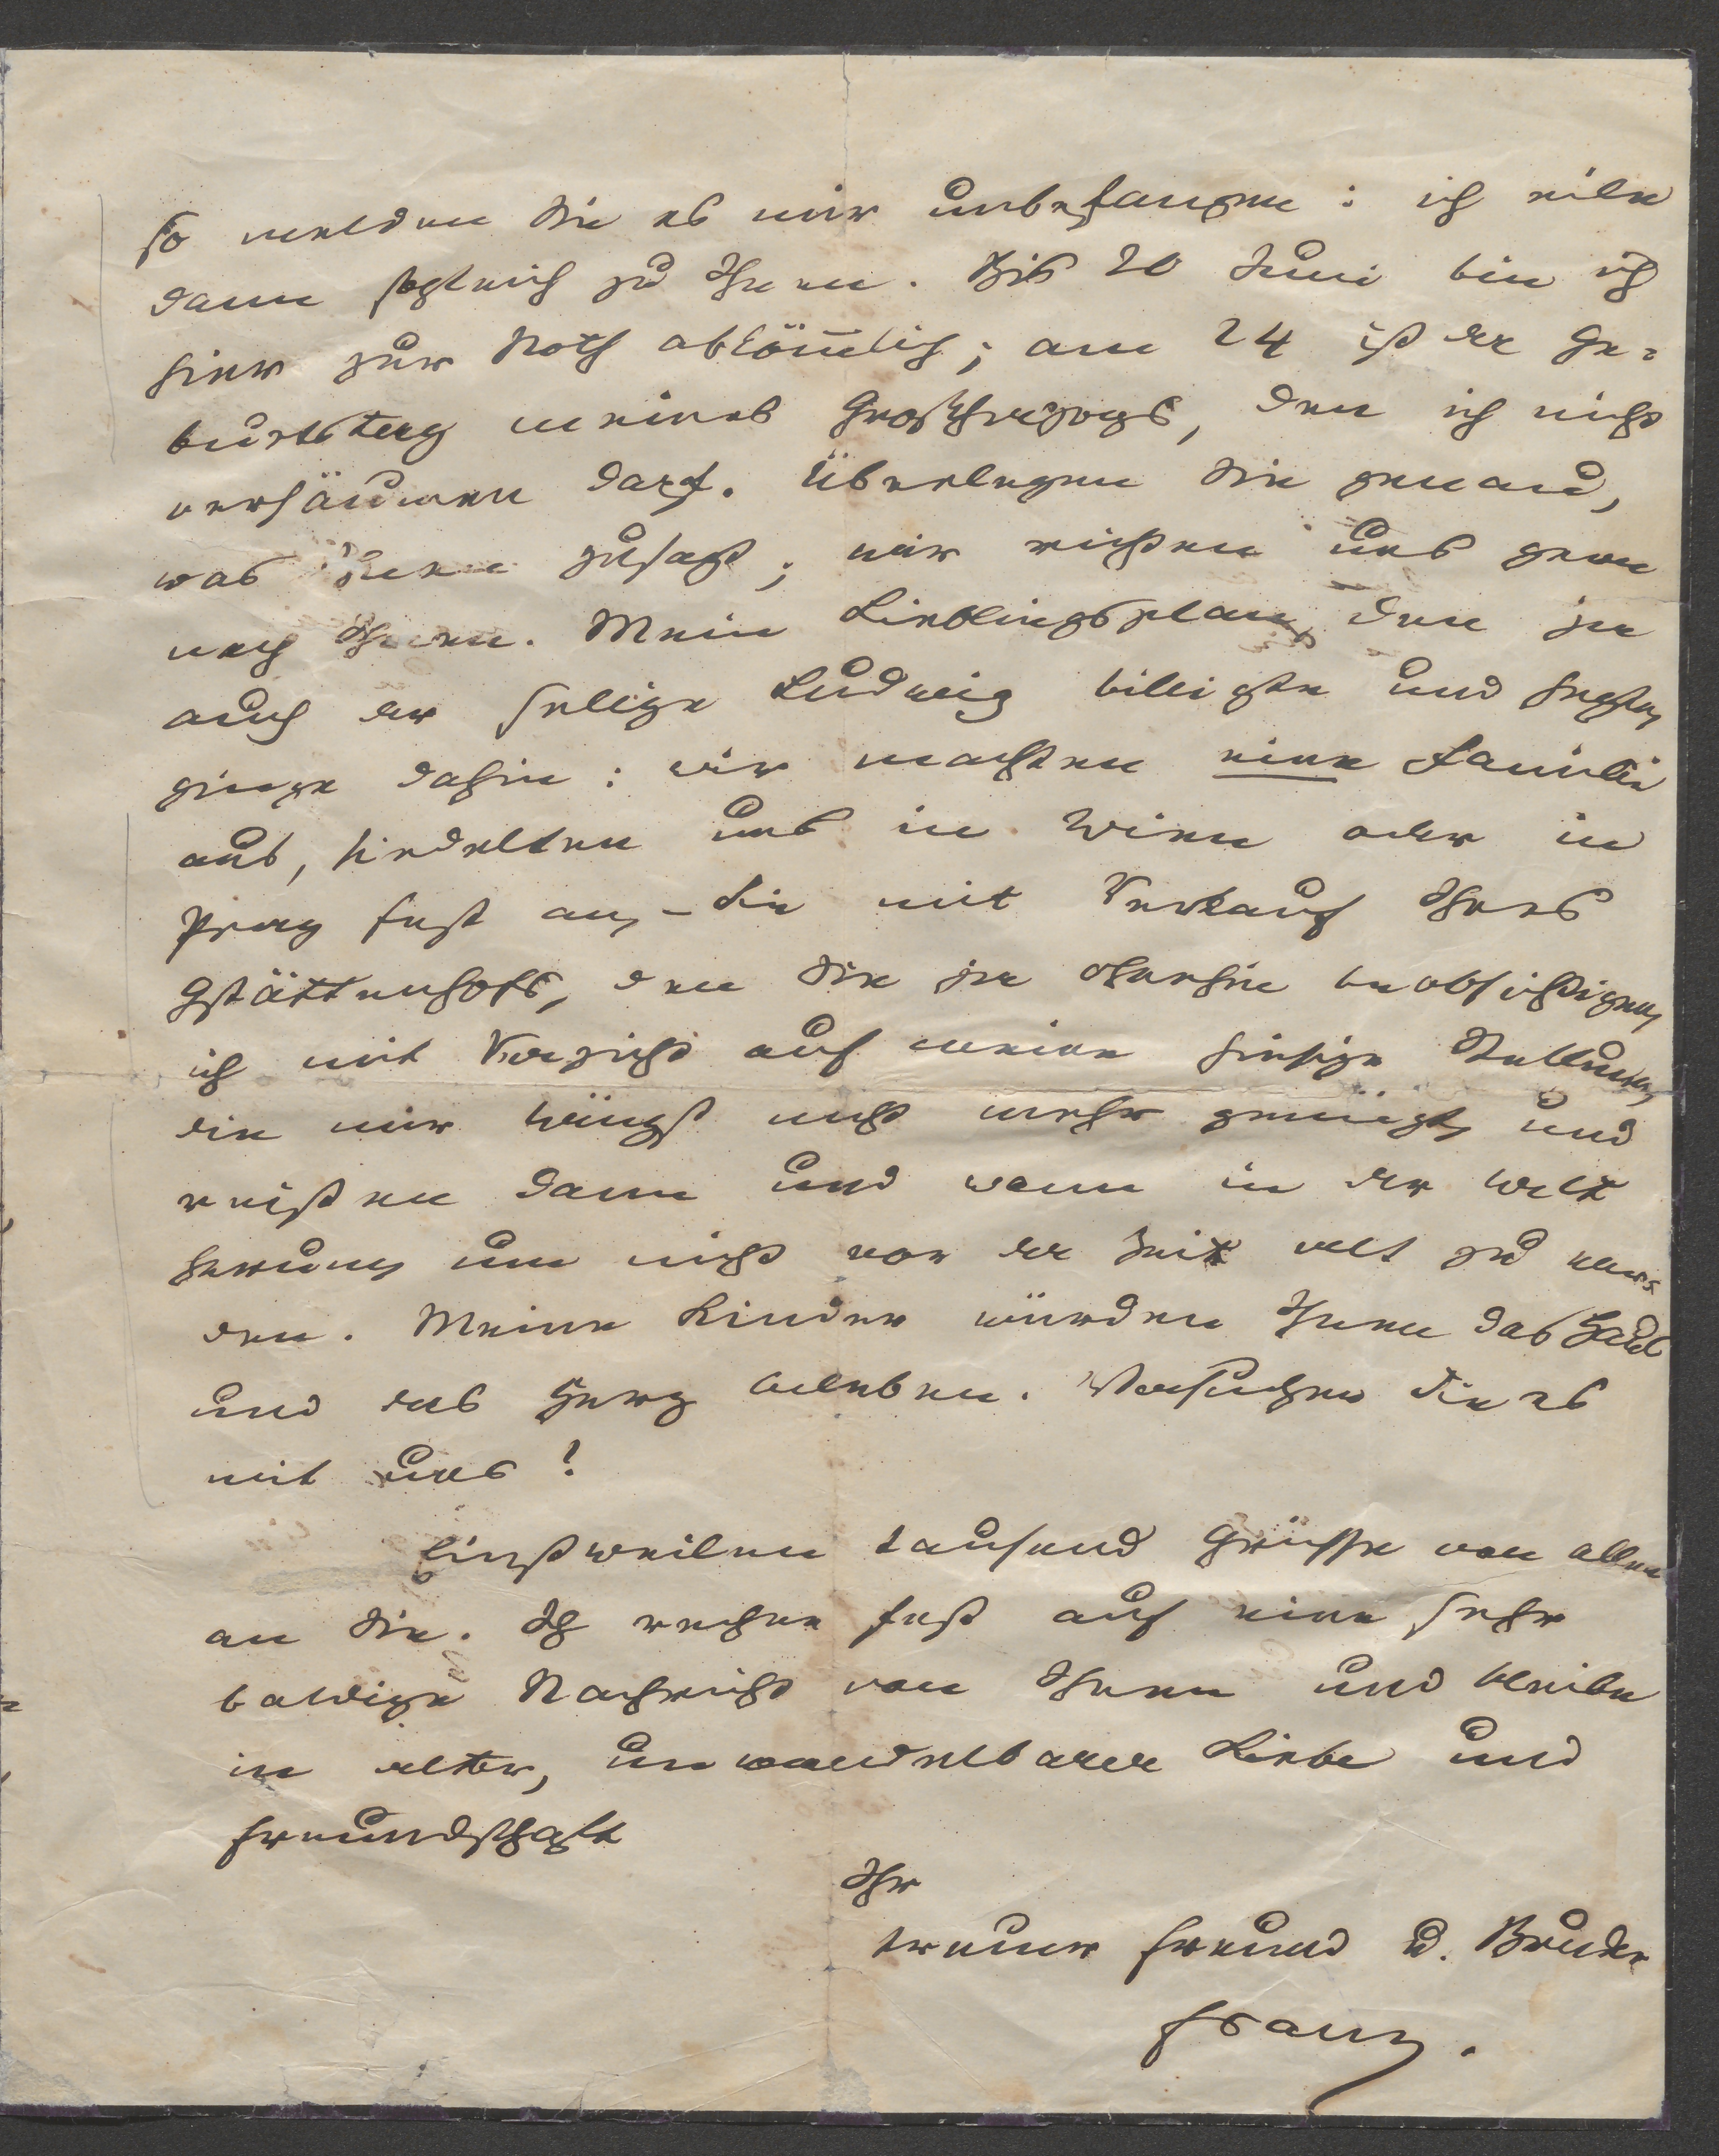 so melden Sie es mir unbefangen: ich eile
dann sogleich zu Ihnen. Bis 20 Juni bin ich
hier zur Noth abköm̅lich; am 24 ist der Ge-
burtstag meines Großherzogs, den ich nicht
versäumen darf. Überlegen Sie genau,
was Ihnen zusagt; wir richten uns gern
nach Ihnen. Mein Lieblingsplan, den ja
auch der selige Ludwig billigte und hegte,
ginge dahin: wir machten eine Familie
aus, siedelten uns in Wien oder in
Prag fest an, – Sie mit Verkauf Ihres
Gstättenhofs, den Sie ja ohnehin beabsichtigen,
ich mit Verzicht auf meine hiesige Stellung,
die mir längst nicht mehr genügt, und
reisten dann und wann in der Welt
herum, um nicht vor der Zeit alt zu wer-
den. Meine Kinder würden Ihnen das Haus
und das Herz beleben. Versuchen Sie es
mit uns!
Einstweilen tausend Grüsse von allen
an Sie. Ich rechne fest auf eine sehr
baldige Nachricht von Ihnen und bleibe
in alter, unwandelbarer Liebe und
Freundschaft
Ihr
treuer Freund u. Bruder
Franz.